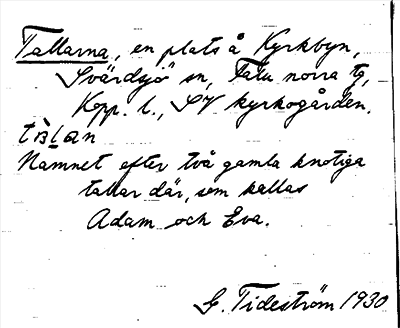 Tallarna, en plats å Kyrkbyn,
Svärdsjö sn, Falu norra tg,
Kopp. l., SV kyrkogården.
Namnet efter två gamla knotiga
tallar där, som kallas
Adam och Eva.
G. Tideström 1930